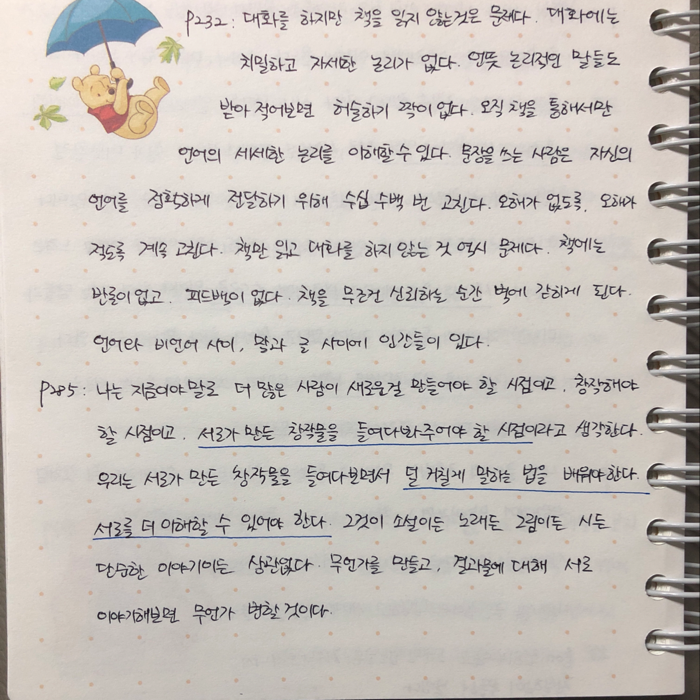 P232: 대화를 하지만 책을 읽지 않는것은 문제다. 대화에는
치밀하고 자세한 논리가 없다. 언뜻 논리적인 말들도
받아 적어보면 허술하기 짝이 없다. 오직 책을 통해서만
언어의 세세한 논리를 이해할 수 있다. 문장을 쓰는 사람은 자신의
언어를 정확하게 전달하기 위해 수십 수백 번 고친다. 오해가 없도록, 오해가
적도록 계속 고친다. 책만 읽고 대화를 하지 않는 것 역시 문제다. 책에는
반론이 없고, 피드백이 없다. 책을 무조건 신뢰하는 순간 벽에 갇히게 된다.
언어와 비언어 사이, 말과 글 사이에 인간들이 있다.
P285: 나는 지금이야말로 더 많은 사람이 새로운걸 만들어야 할 시점이고, 창작해야
할 시점이고, 서로가 만든 창작물을 들여다봐주어야 할 시점이라고 생각한다.
우리는 서로가 만든 창작물을 들여다보면서 덜 거칠게 말하는 법을 배워야한다.
서로를 더 이해할 수 있어야 한다. 그것이 소설이든 노래든 그림이든 시든
단순한 이야기이든 상관없다. 무언가를 만들고, 결과물에 대해 서로
이야기해보면 무언가 변할 것이다.